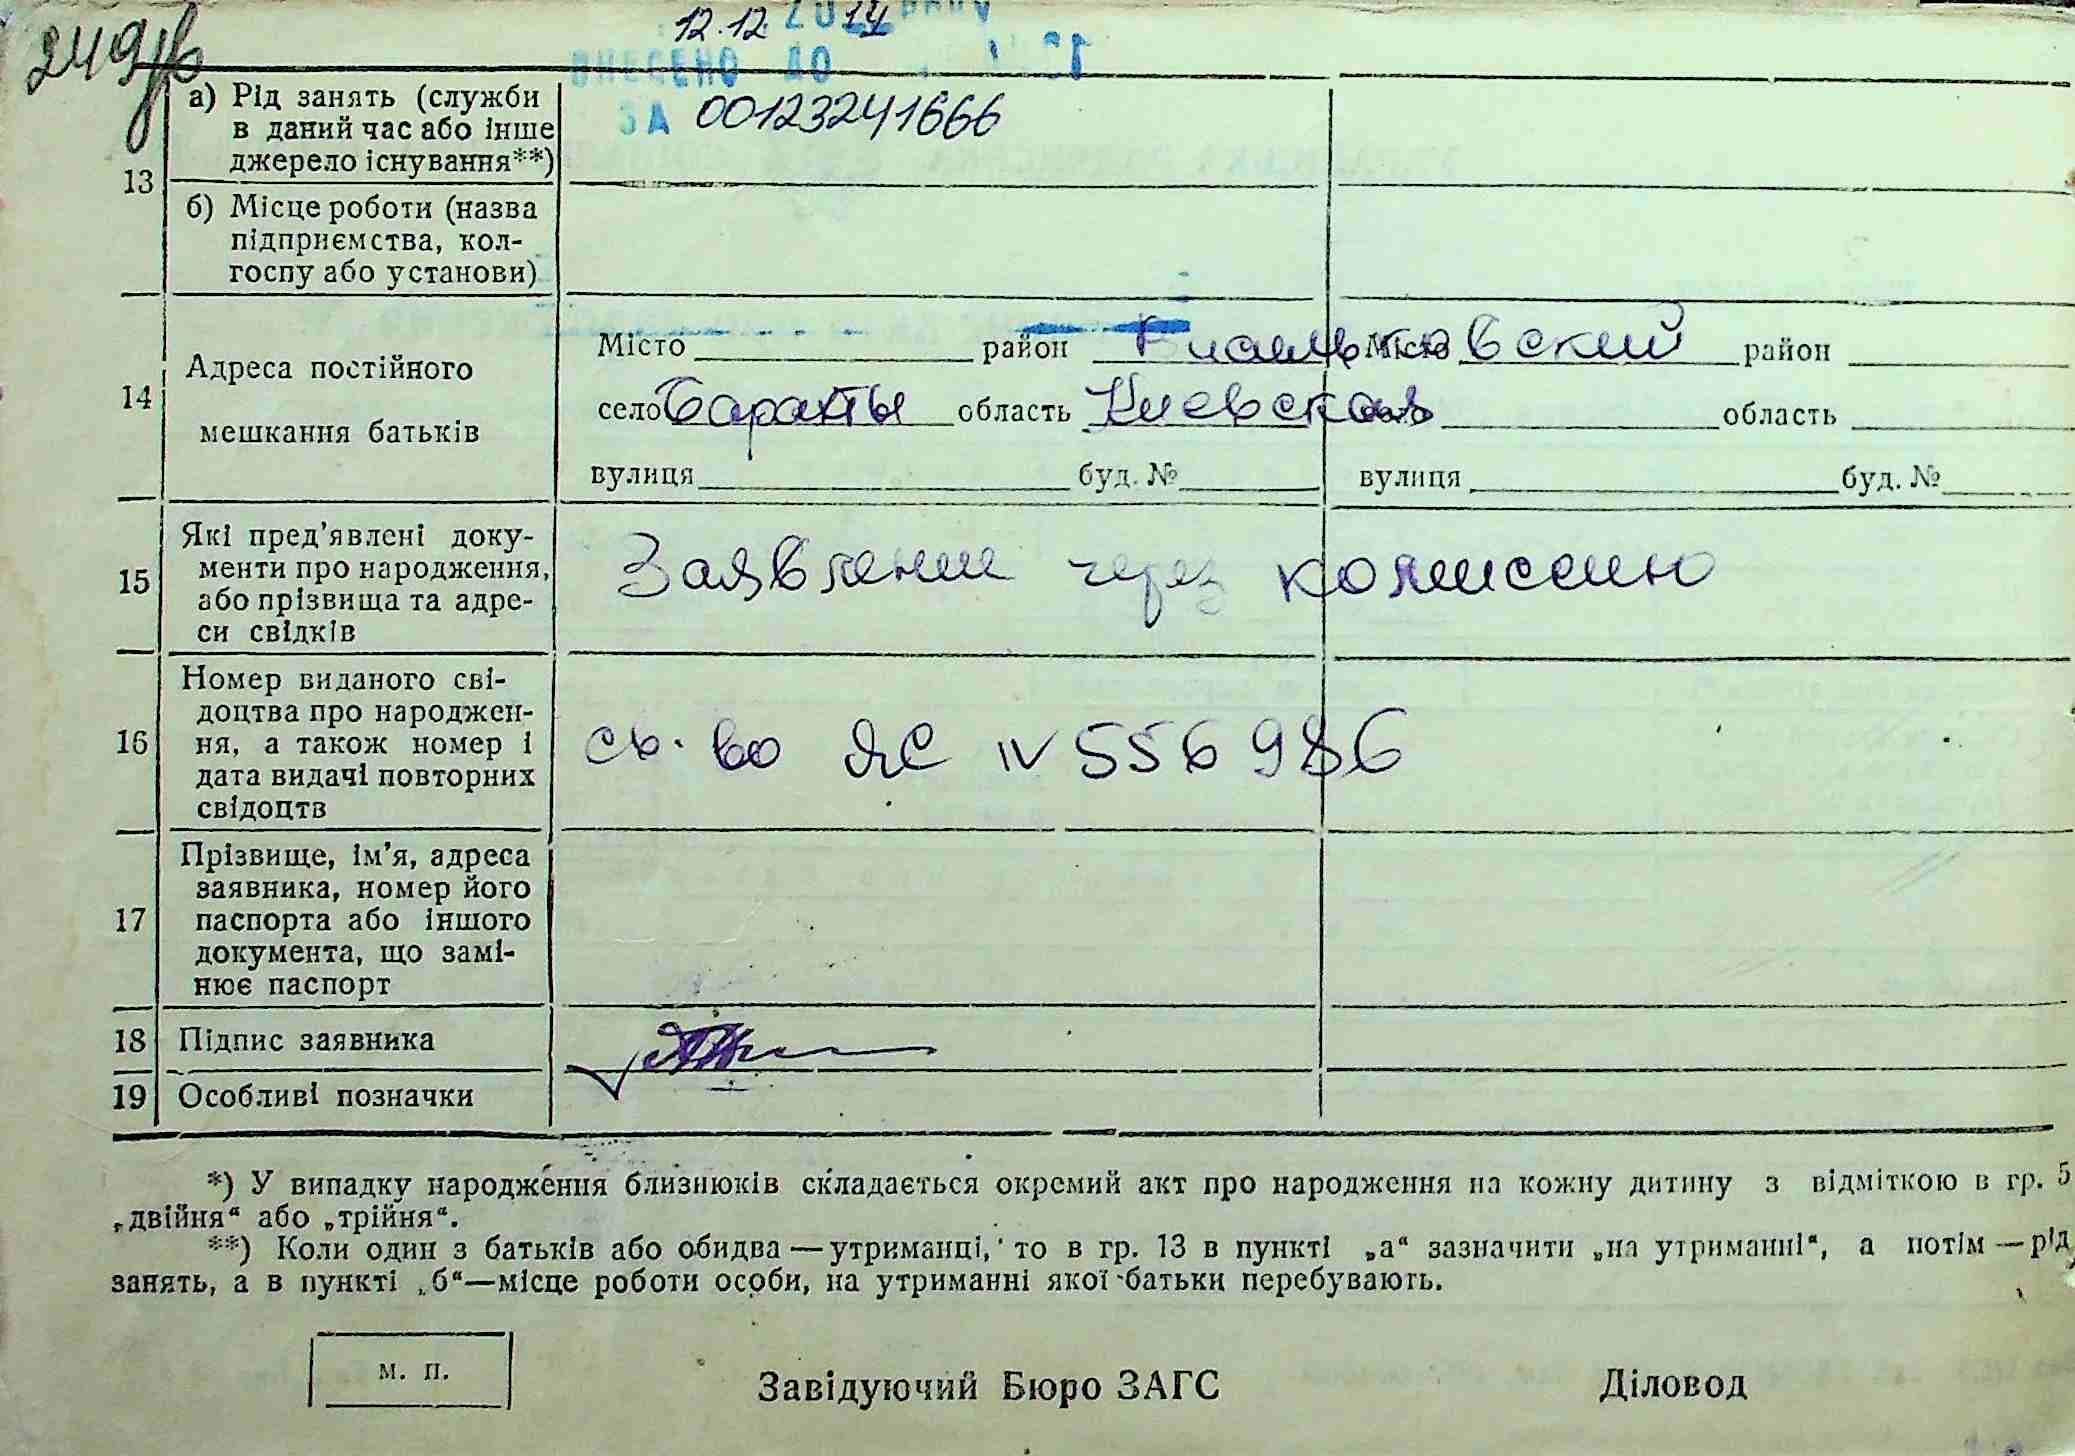 249
12.12. 2014 року
ВНЕСЕНО ДО
ЗА 00123241666
13 а) Рід занять (служби
в даний час або інше
джерело існування**)
б) Місце роботи (назва
підприємства, кол-
госпу або установи)
14 Адреса постійного
мешкання батьків
Місто район Місто район
село область Киевская село область
вулиця буд. № вулиця буд. №
15 Які пред'явлені доку-
менти про народження,
або прізвища та адре-
си свідків
Заявление через комиссию
16 Номер виданого сві-
доцтва про народжен-
ня, а також номер і
дата видачі повторних
свідоцтв
св-во ЯС IV 556986
17 Прізвище, ім'я, адреса
заявника, номер його
паспорта або іншого
документа, що замі-
нює паспорт
18 Підпис заявника
19 Особливі позначки
*) У випадку народження близнюків складається окремий акт про народження на кожну дитину з відміткою в гр. 5
„двійня“ або „трійня“.
**) Коли один з батьків або обидва — утриманці, то в гр. 13 в пункті „а“ зазначити „на утриманні“, а потім — рід
занять, а в пункті „б“—місце роботи особи, на утриманні якої батьки перебувають.
М. П.
Завідуючий Бюро ЗАГС Діловод